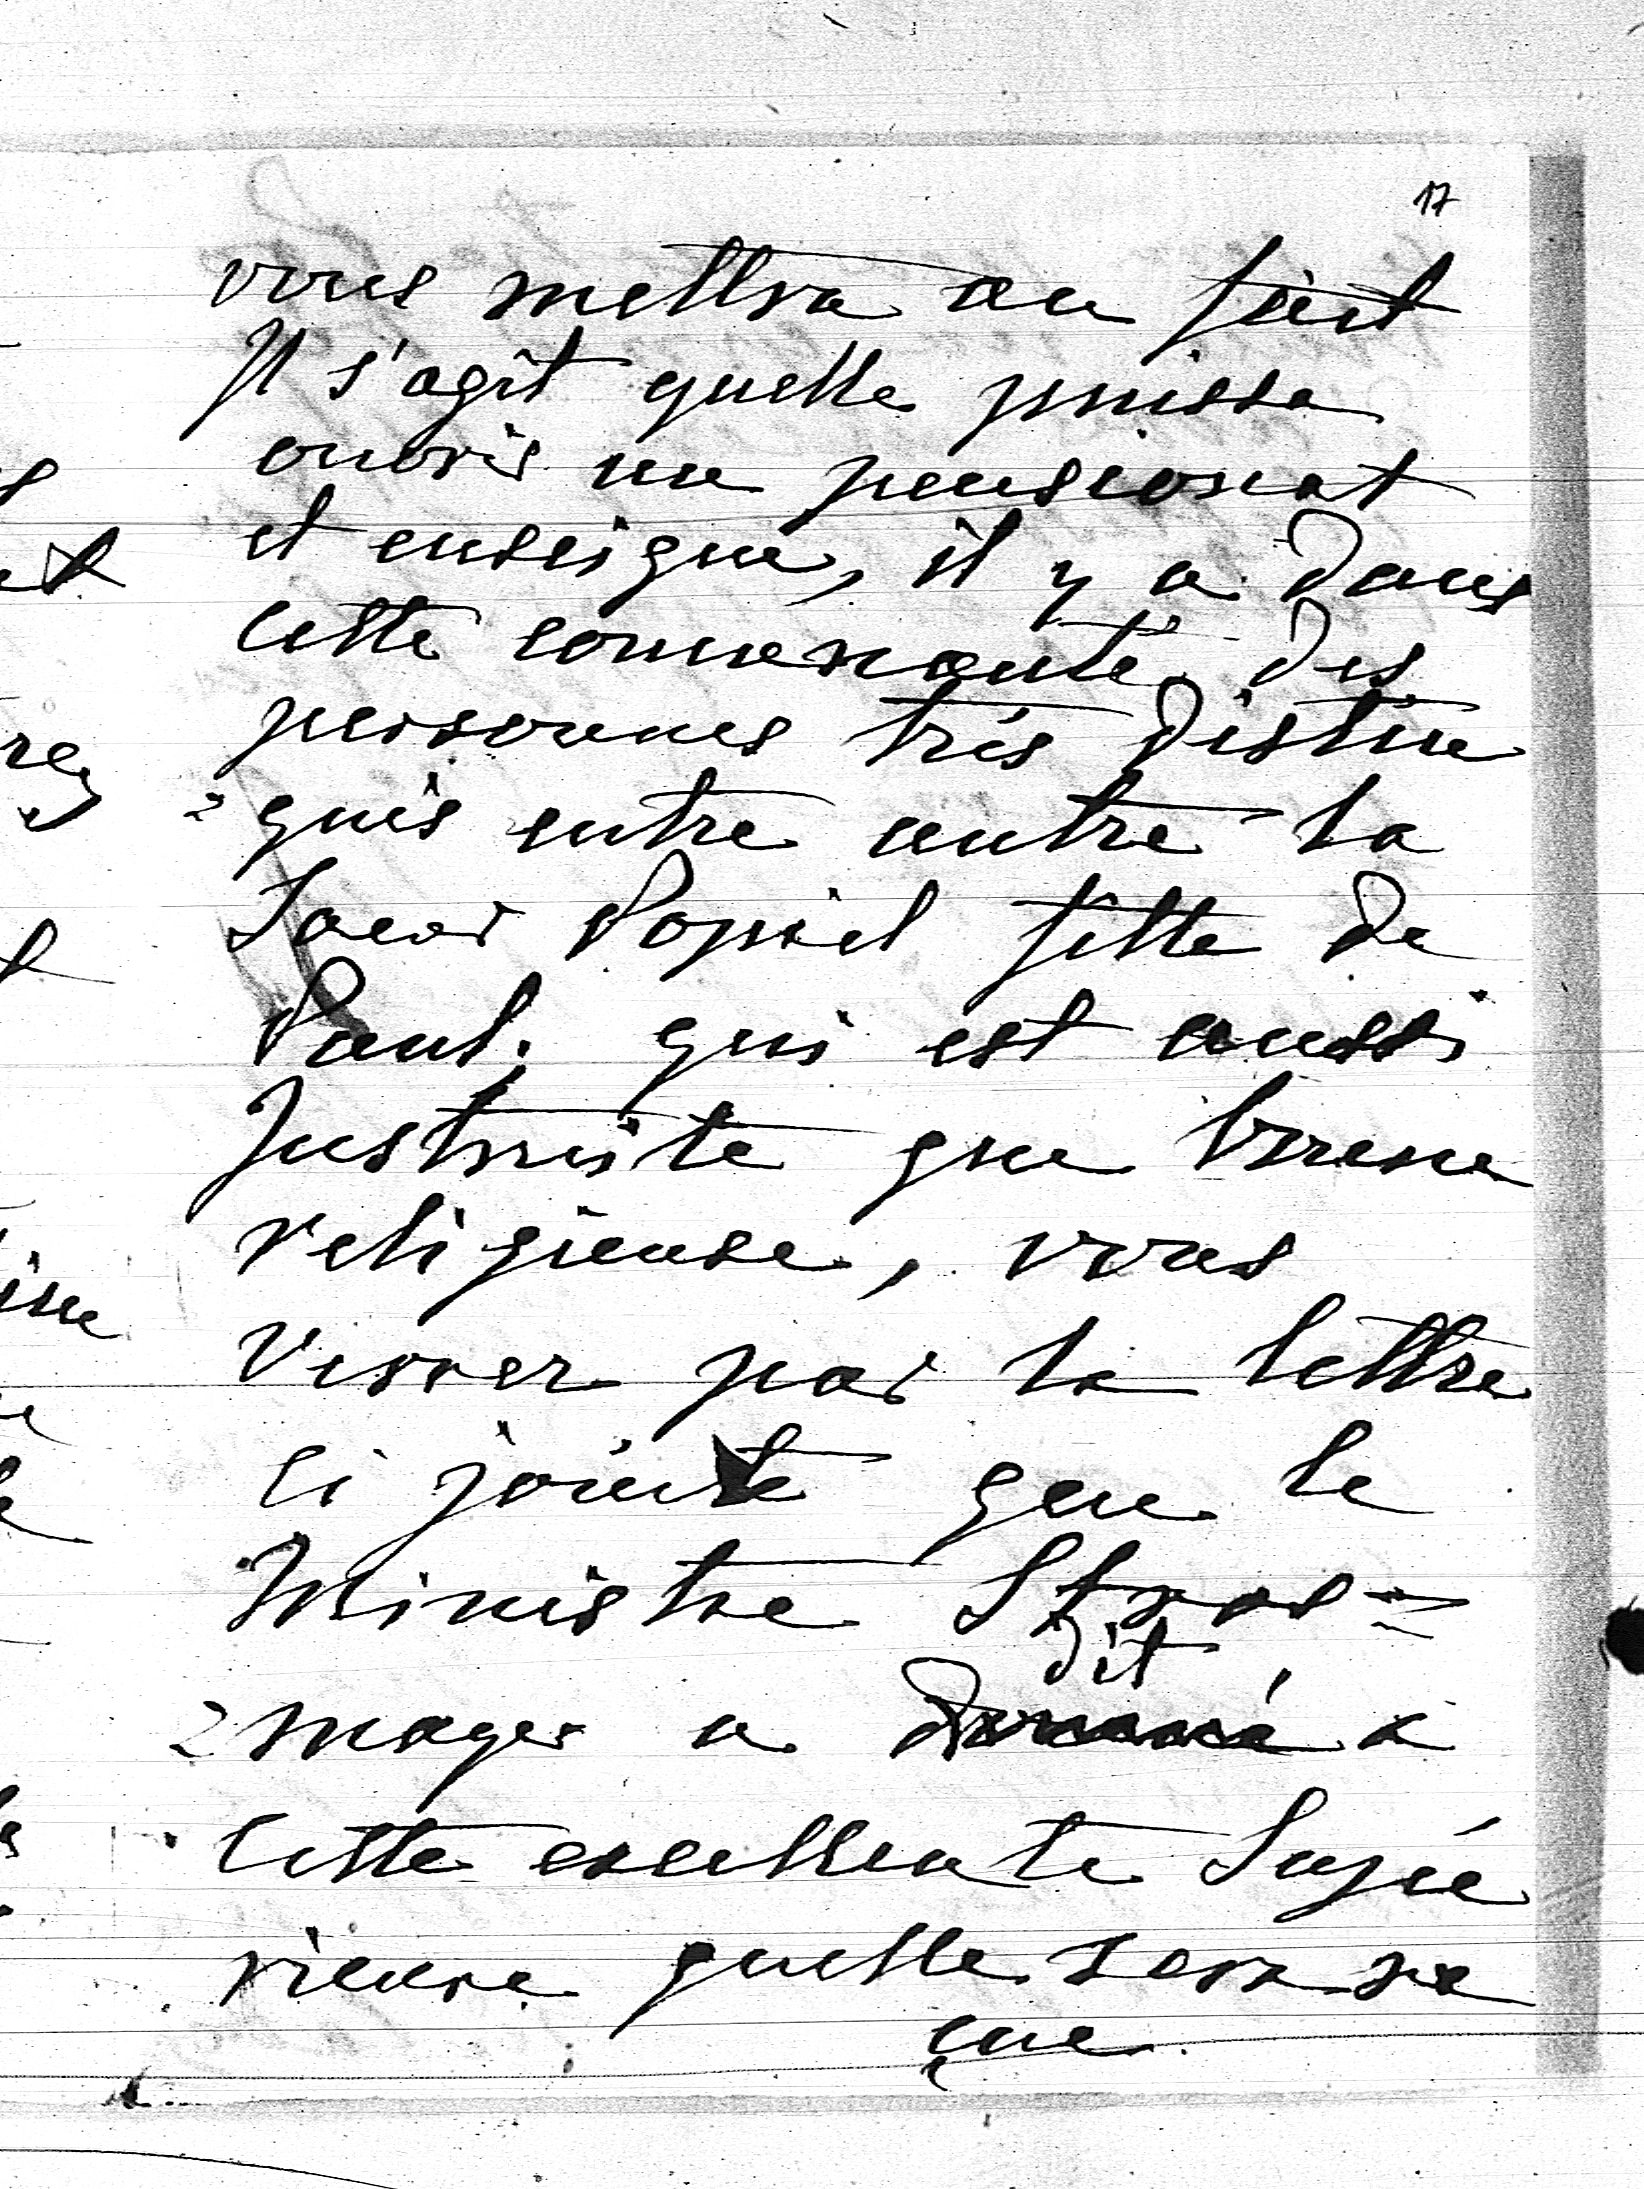 17
vous mettra au fait
Il s'agit quelle puisse
ouvrir un pensionat
et enseigne, il y a dans
cette comunauté des
personnes très distin
=gués entre autre la
Soeur Popiel fille de
Paul, qui est aussi
Instruite que bonne
religieuse, vous
verrer par la lettre
ci jointe que le
Ministre Stros=
dit
=mayer a donné a
cette excellente Supé
rieure quelle sera re
çue